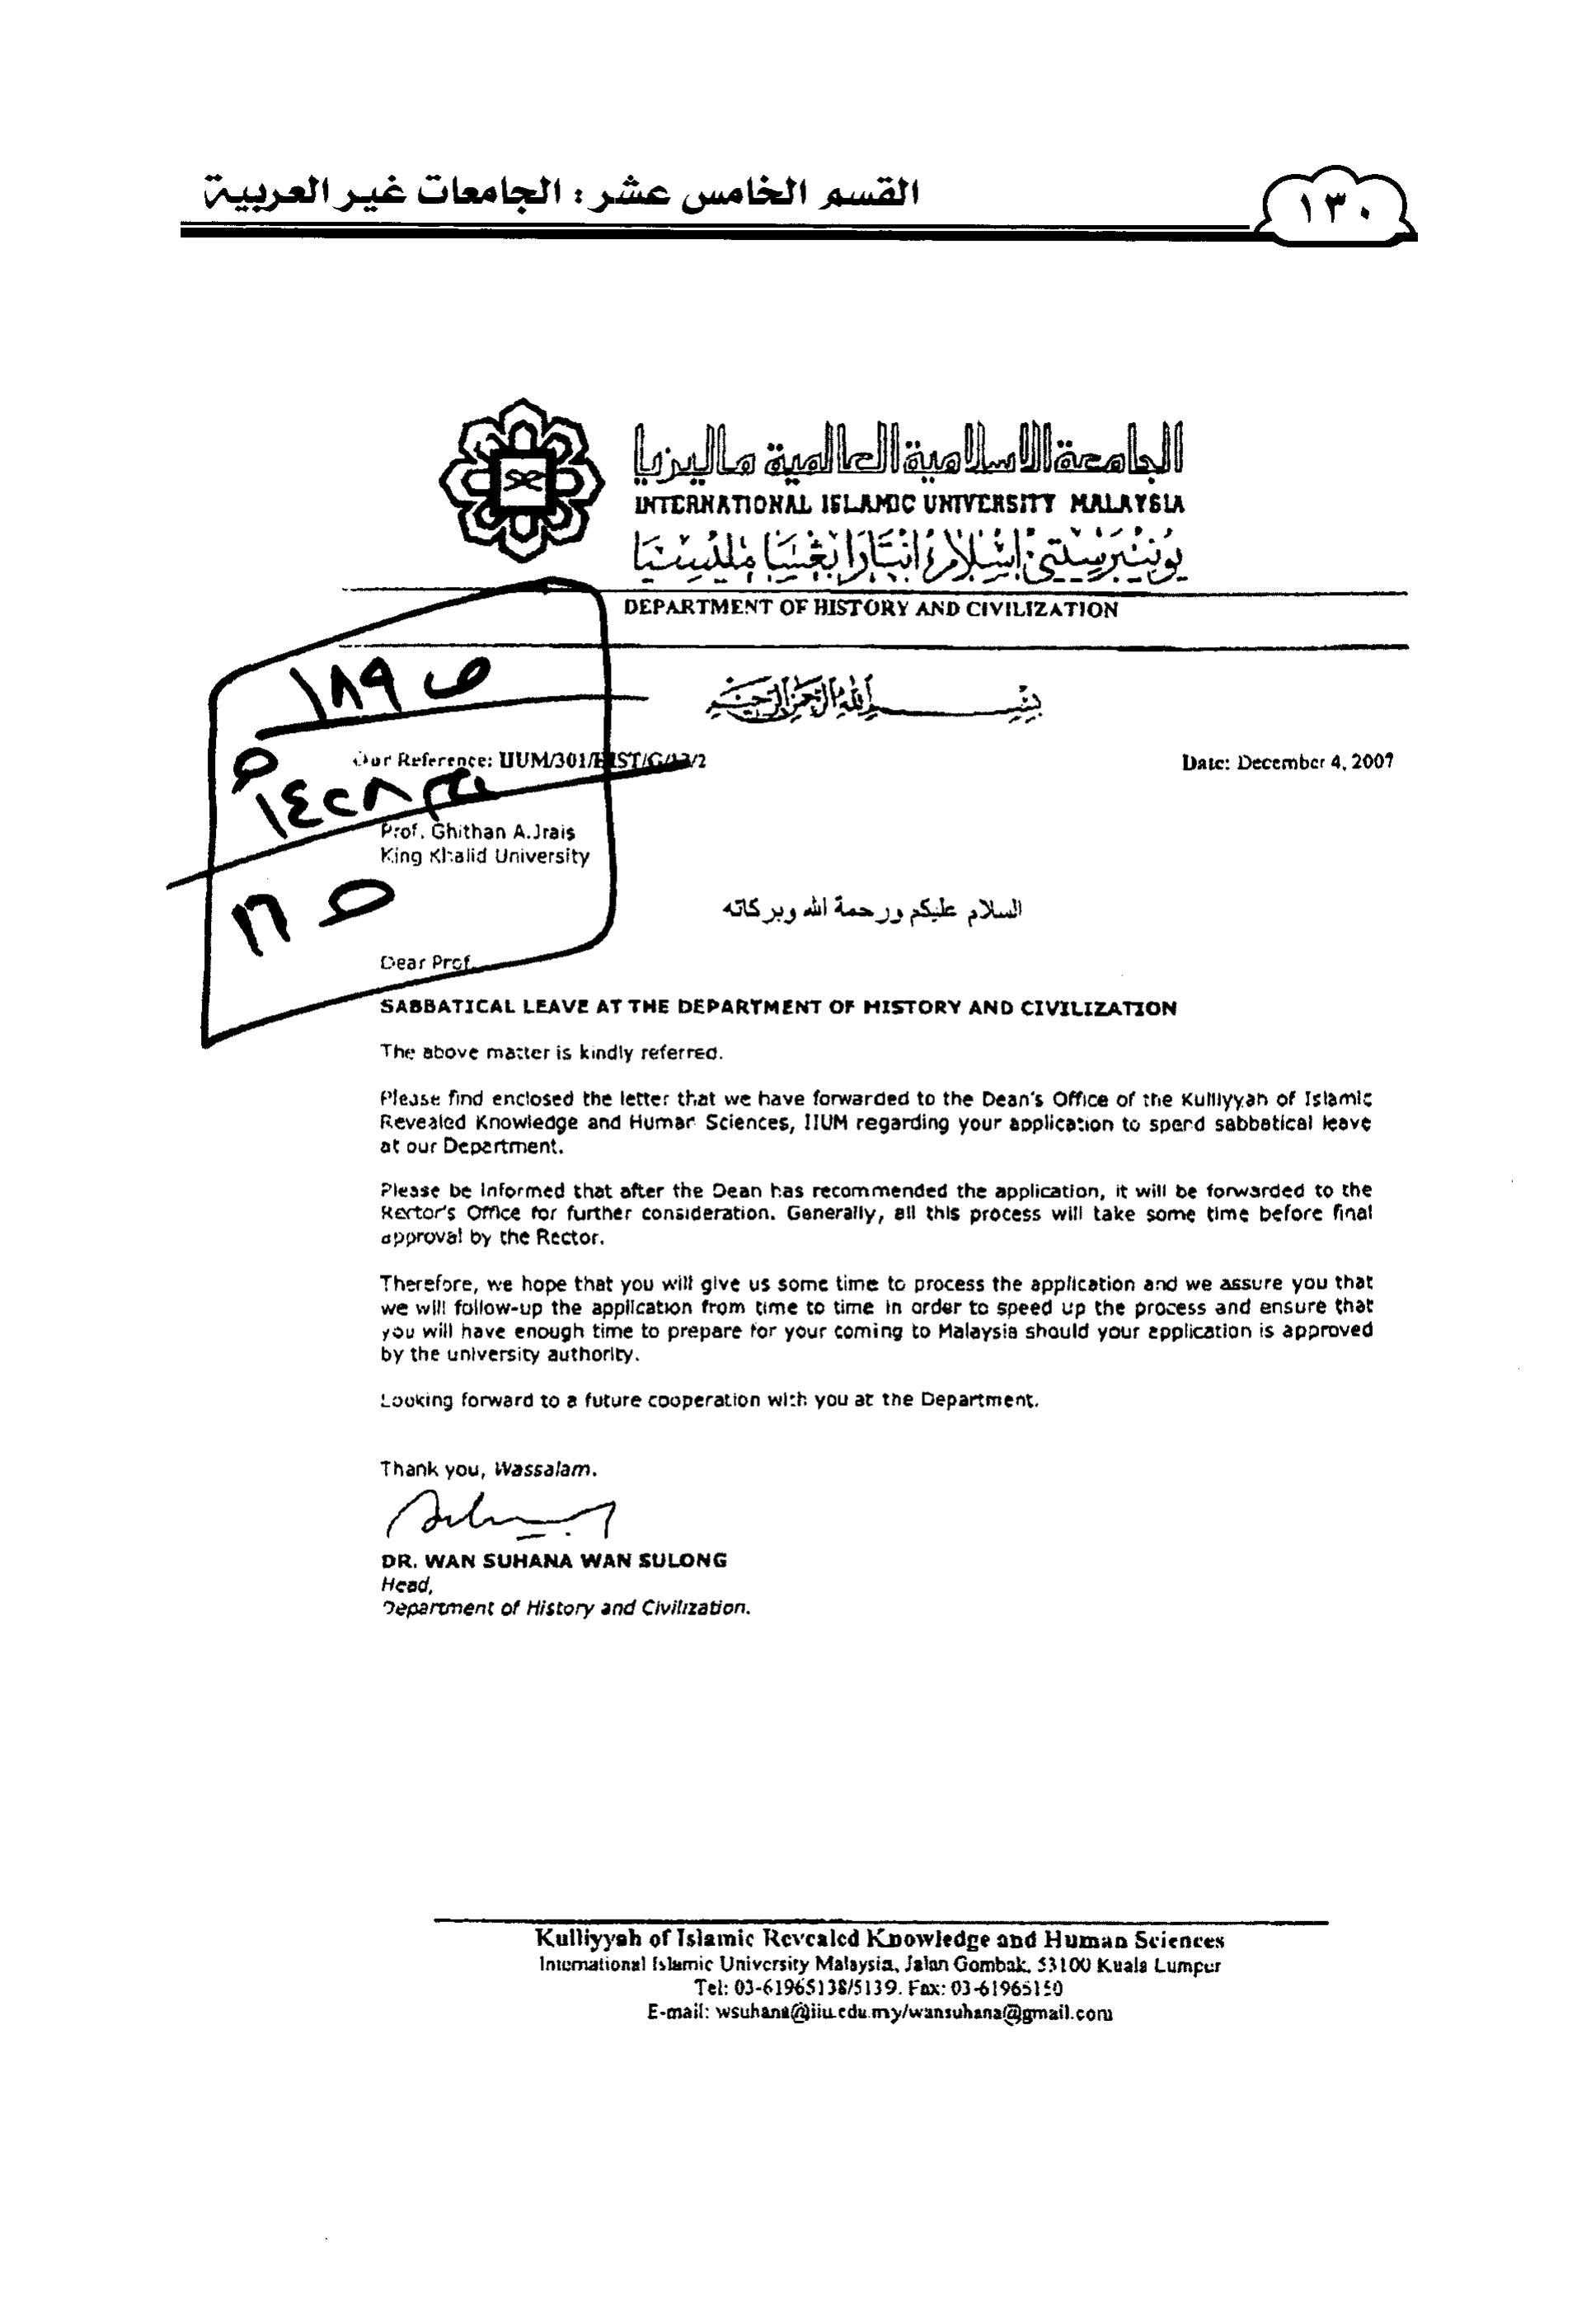 القسم الخامس عشر : الجامعات غير العربية
١٣٠
الجامعة الاسلامية العالمية ماليزيا
INTERNATIONAL ISLAMIC UNIVERSITY MALAYSIA
يونيبرسيتي اسلام انتارابغسا مليسيا
DEPARTMENT OF HISTORY AND CIVILIZATION
ص ١٨٩
بسم الله الرحمن الرحيم
Our Reference: IIUM/301/HIST/G/13/2
Date: December 4, 2007
١٤٢٨
Prof. Ghithan A.Jrais
King Khalid University
ص ١٦
السلام عليكم ورحمة الله وبركاته
Dear Prof.
SABBATICAL LEAVE AT THE DEPARTMENT OF HISTORY AND CIVILIZATION
The above matter is kindly referred.
Please find enclosed the letter that we have forwarded to the Dean's Office of the Kulliyyah of Islamic
Revealed Knowledge and Human Sciences, IIUM regarding your application to spend sabbatical leave
at our Department.
Please be informed that after the Dean has recommended the application, it will be forwarded to the
Rector's Office for further consideration. Generally, all this process will take some time before final
approval by the Rector.
Therefore, we hope that you will give us some time to process the application and we assure you that
we will follow-up the application from time to time in order to speed up the process and ensure that
you will have enough time to prepare for your coming to Malaysia should your application is approved
by the university authority.
Looking forward to a future cooperation with you at the Department.
Thank you, Wassalam.
DR. WAN SUHANA WAN SULONG
Head,
Department of History and Civilization.
Kulliyyah of Islamic Revealed Knowledge and Human Sciences
International Islamic University Malaysia, Jalan Gombak, 53100 Kuala Lumpur
Tel: 03-61965138/5139. Fax: 03-61965150
E-mail: wsuhana@iiu.edu.my/wansuhana@gmail.com